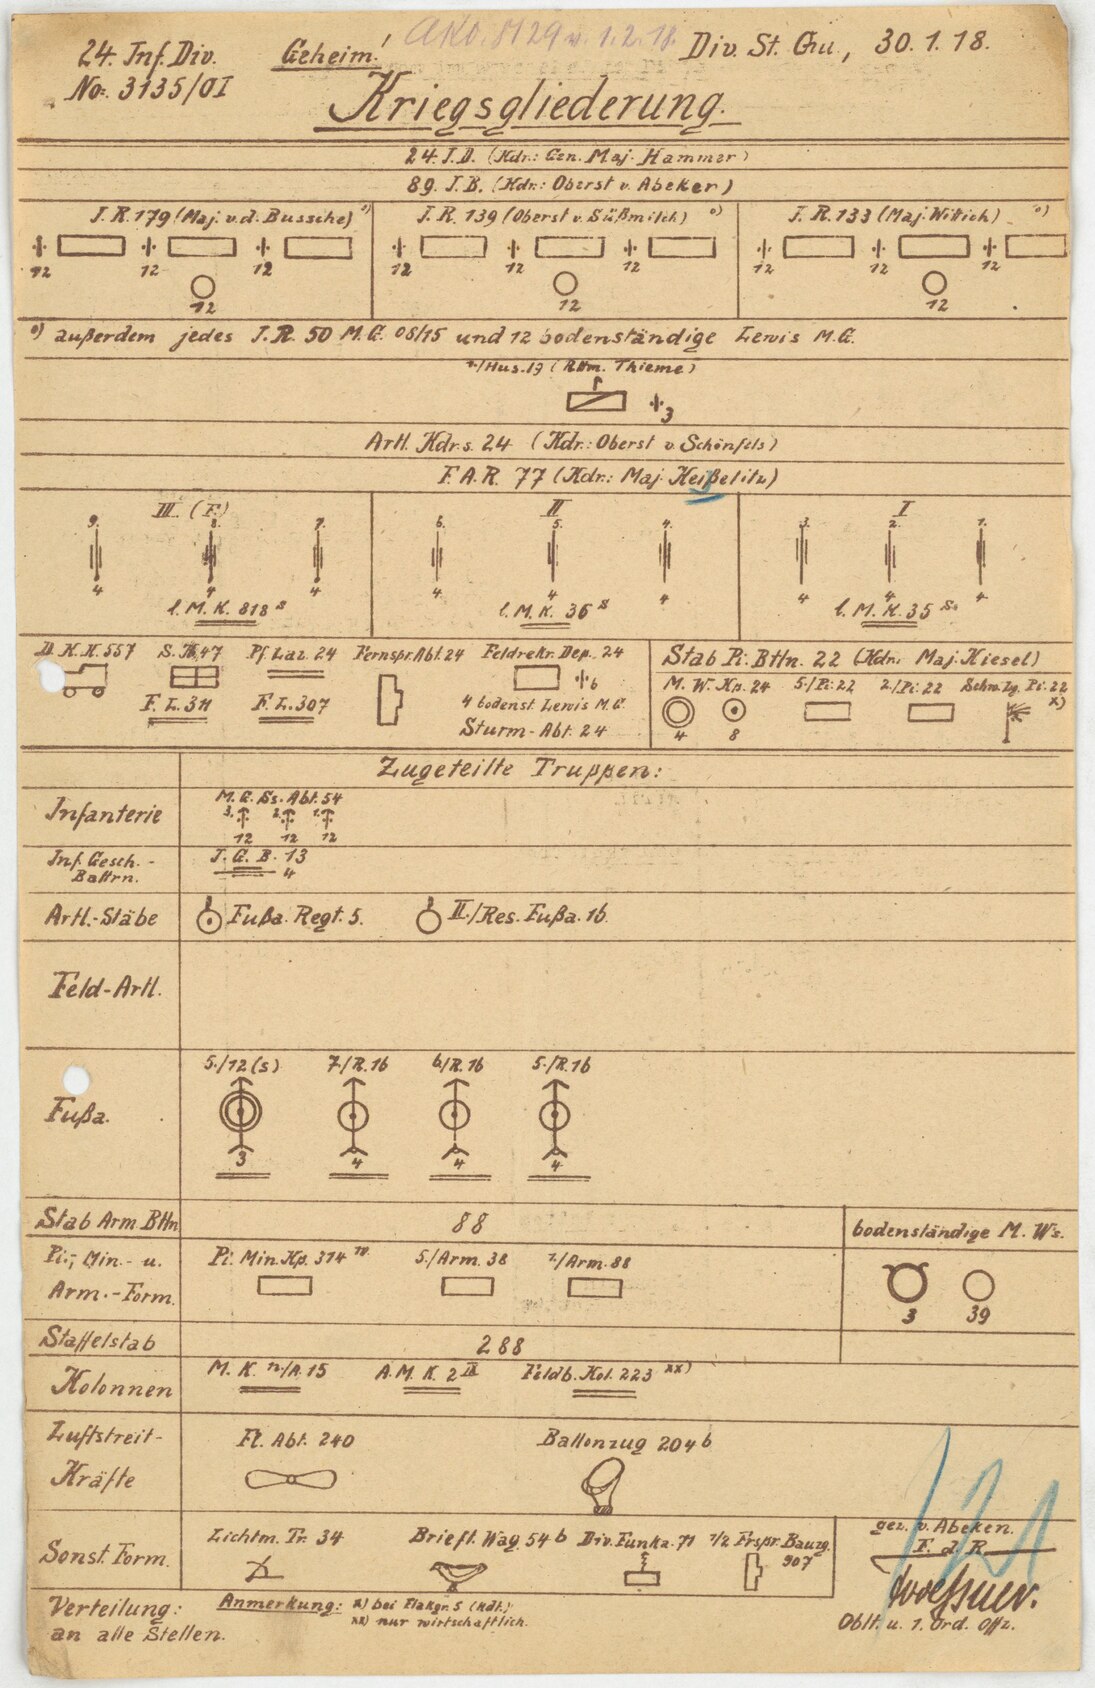 24. Inf. Div. Geheim! AKO. 8129 v. 1.2.18. Div. St. Qu., 30.1.18.
No. 3135/OI
Kriegsgliederung.
24. I.D. (Kdr.: Gen. Maj. Hammer)
89. I.B. (Kdr.: Oberst v. Abeker)
I.R. 179 (Maj. v.d. Bussche) °)
12 12 12
12
I.R. 139 (Oberst v. Süßmilch) °)
12 12 12
12
I.R. 133 (Maj. Wittich) °)
12 12 12
12
°) außerdem jedes I.R. 50 M.G. 08/15 und 12 bodenständige Lewis M.G.
/Hus. 19 (Rttm. Thieme)
3
Artl. Kdr. s. 24 (Kdr.: Oberst v. Schönfels)
F.A.R. 77 (Kdr.: Maj. Keißelitz)
III. (F.)
9. 8. 7.
4 4 4
l. M. K. 818 s
II
6. 5. 4.
4 4 4
l. M. K. 36 s
I
3. 2. 1.
4 4 4
l. M. K. 35 s.
D.K.K. 557 S. 47 Pf. Laz. 24 Fernspr. Abt. 24 Feldrekr. Dep. 24
6
F.L. 311 F.L. 307 4 bodenst. Lewis M.G.
Sturm-Abt. 24
Stab Pi. Bttn. 22 (Kdr. Maj. Kiesel)
M.W. Kp. 24 5./Pi. 22 2./Pi. 22 Schw. Zg. Pi. 22
x)
4 8
Zugeteilte Truppen:
Infanterie M.G. Ss. Abt. 54
3. 2. 1.
12 12 12
Inf. Gesch.-
Battrn. I.G.B. 13
4
Artl.-Stäbe Fußa. Regt. 5. II./Res. Fußa. 16.
Feld-Artl.
Fußa. 5./12 (s) 7./R. 16 6/R. 16 5./R. 16
3 4 4 4
Stab Arm. Bttn 88 bodenständige M. Ws.
Pi.-, Min.- u.
Arm.-Form. Pi. Min. Kp. 314 5./Arm. 38 /Arm. 88
3 39
Staffelstab 288
Kolonnen M.K. /A. 15 A.M.K. 2 Feldb. Kol. 223 xx)
Luftstreit-
Kräfte Fl. Abt. 240 Ballonzug 204 b
Sonst. Form. Lichtm. Tr. 34 Brieft. Wag. 54 b Div. Funka. 71 1/2 Frspr. Bauzg.
907
gez. v. Abeken.
F. d. R.
Oblt. u. 1. Ord. Offz.
Verteilung: Anmerkung: x) bei Flakgr. 5
an alle Stellen. xx) nur wirtschaftlich.